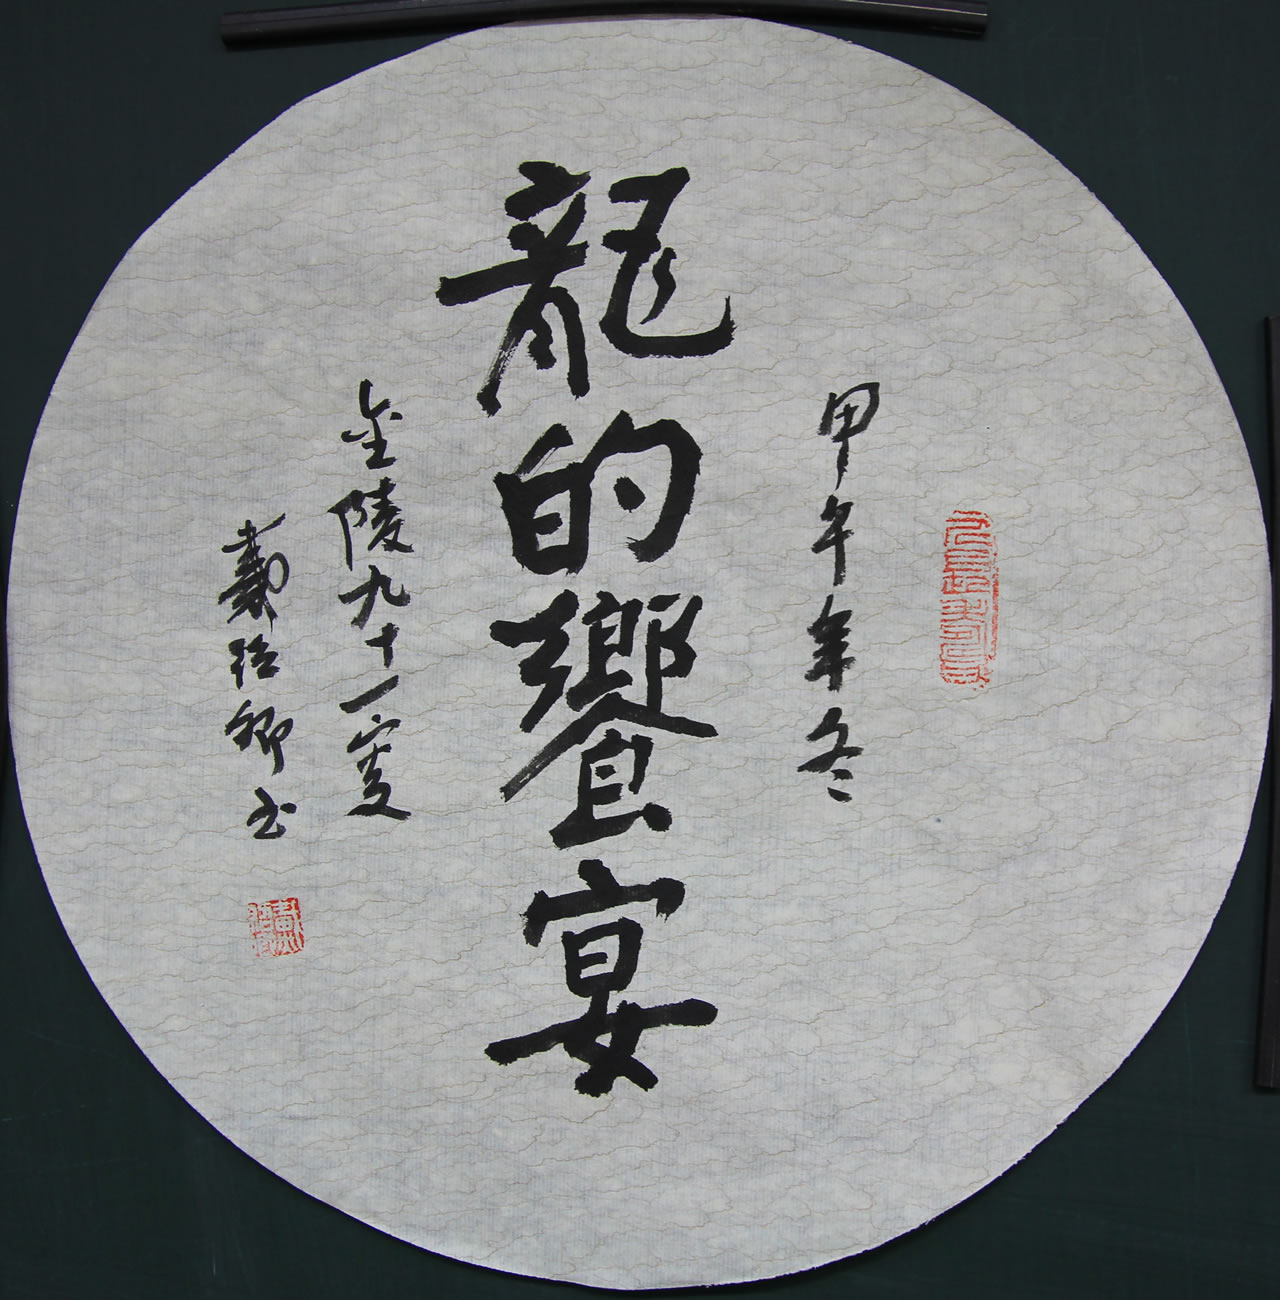 甲午年冬
龍的饗宴
金陵九十一叟
戴 卿书